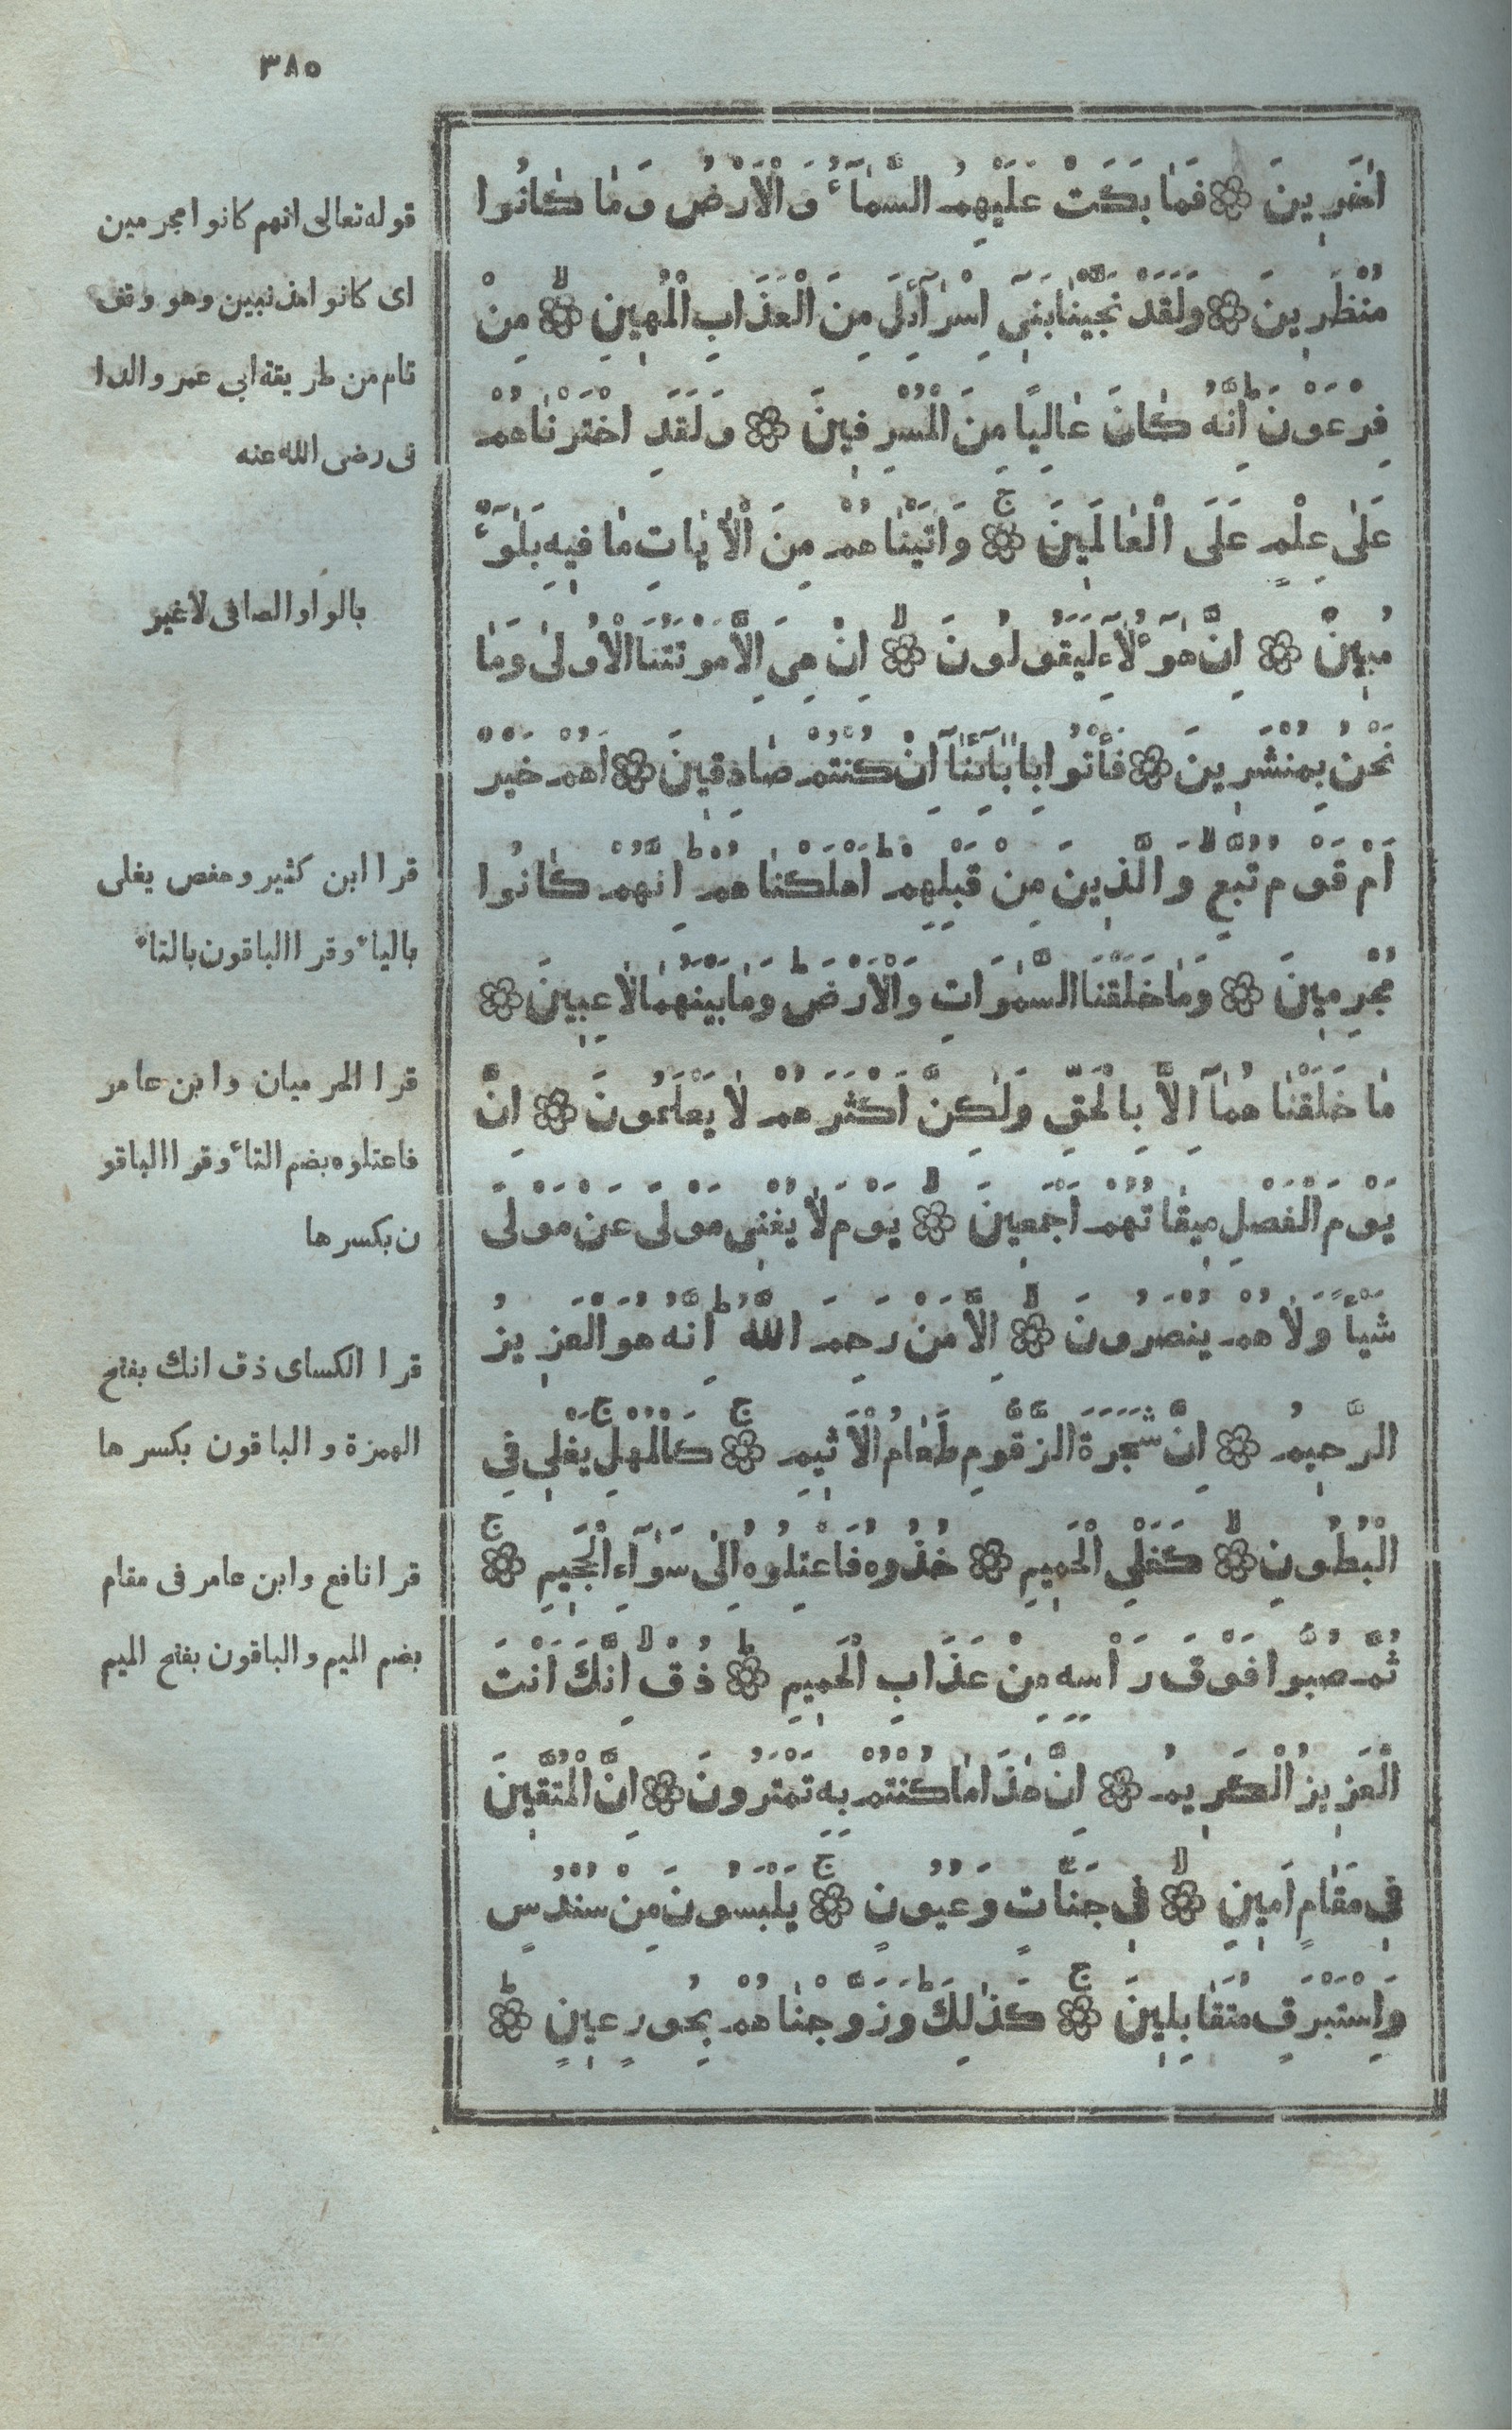 ٣٨٥
اٰخَرِينَ ۞ فَمٰا بَكَتْ عَلَيْهِمُ السَّمٰآءُ وَالْاَرْضُ وَمٰا كٰانُوا
مُنْظَرِينَ ۞ وَلَقَدْ نَجَّيْنٰا بَنِىٓ اِسْرٰآئِلَ مِنَ الْعَذَابِ الْمُهِينِ ۞ لا مِنْ
فِرْعَوْنَ ط اِنَّهُ كٰانَ عٰالِيًا مِنَ الْمُسْرِفِينَ ۞ وَلَقَدِ اخْتَرْنٰاهُمْ
عَلٰى عِلْمٍ عَلَى الْعٰالَمِينَ ۞ ج وَاٰتَيْنٰاهُمْ مِنَ الْاٰيٰاتِ مٰا فِيهِ بَلٰوٌٓ
مُبِينٌ ۞ اِنَّ هٰٓؤُلَآءِ لَيَقُولُونَ ۞ لا اِنْ هِىَ اِلَّا مَوْتَتُنَا الْاُولٰى وَمٰا
نَحْنُ بِمُنْشَرِينَ ۞ فَأْتُوا بِاٰبٰآئِنٰآ اِنْ كُنْتُمْ صٰادِقِينَ ۞ اَهُمْ خَيْرٌ
اَمْ قَوْمُ تُبَّعٍ لا وَالَّذِينَ مِنْ قَبْلِهِمْ ط اَهْلَكْنٰاهُمْ ط اِنَّهُمْ كٰانُوا
مُجْرِمِينَ ۞ وَمٰا خَلَقْنَا السَّمٰوَاتِ وَالْاَرْضَ وَمٰا بَيْنَهُمٰا لٰاعِبِينَ ۞
مٰا خَلَقْنٰاهُمٰآ اِلَّا بِالْحَقِّ وَلٰكِنَّ اَكْثَرَهُمْ لٰا يَعْلَمُونَ ۞ اِنَّ
يَوْمَ الْفَصْلِ مِيقٰاتُهُمْ اَجْمَعِينَ ۞ لا يَوْمَ لٰا يُغْنِى مَوْلًى عَنْ مَوْلًى
شَيْأً وَلٰا هُمْ يُنْصَرُونَ ۞ لا اِلَّا مَنْ رَحِمَ اللّٰهُ ط اِنَّهُ هُوَ الْعَزِيزُ
الرَّحِيمُ ۞ اِنَّ شَجَرَةَ الزَّقُّومِ طَعٰامُ الْاَثِيمِ ۞ ج كَالْمُهْلِ ج يَغْلِى فِى
الْبُطُونِ ۞ لا كَغَلْىِ الْحَمِيمِ ۞ خُذُوهُ فَاعْتِلُوهُ اِلٰى سَوٰآءِ الْجَحِيمِ ۞ ج
ثُمَّ صُبُّوا فَوْقَ رَأْسِهِ مِنْ عَذَابِ الْحَمِيمِ ۞ ط ذُقْ لا اِنَّكَ اَنْتَ
الْعَزِيزُ الْكَرِيمُ ۞ اِنَّ هٰذَا مٰا كُنْتُمْ بِهِ تَمْتَرُونَ ۞ اِنَّ الْمُتَّقِينَ
فِى مَقٰامٍ اَمِينٍ ۞ لا فِى جَنَّاتٍ وَعُيُونٍ ۞ ج يَلْبَسُونَ مِنْ سُنْدُسٍ
وَاِسْتَبْرَقٍ مُتَقٰابِلِينَ ۞ ج كَذٰلِكَ ط وَزَوَّجْنٰاهُمْ بِحُورٍ عِينٍ ۞ ط
قوله تعالى انهم كانوا مجرمين
اى كانوا مذنبين وهو وقف
تام من طريقة ابى عمرو الدا
نى رضى الله عنه
بالواو الصافى لا غير
قرا ابن كثير وحفص يغلى
بالياء وقرا الباقون بالتاء
قرا الحرميان وابن عامر
فاعتلوه بضم التاء وقرا الباقو
ن بكسرها
قرا الكساى ذق انك بفتح
الهمزة والباقون بكسرها
قرا نافع وابن عامر فى مقام
بضم الميم والباقون بفتح الميم